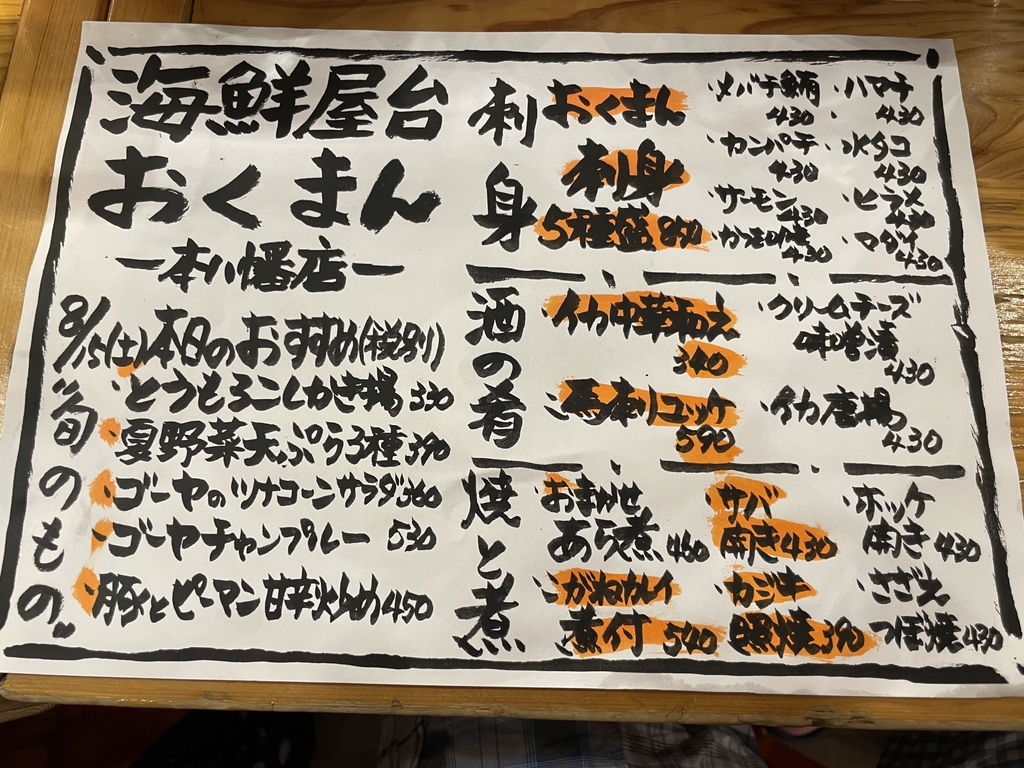 海鮮屋台
おくまん
ー本八幡店ー
8/15(土)本日のおすすめ(税別)
旬のもの
・とうもろこしかき揚 330
・夏野菜天ぷら3種 390
・ゴーヤのツナコーンサラダ 360
・ゴーヤチャンプルー 530
・豚とピーマン甘辛炒め 450
刺身
おくまん
刺身
5種盛 890
・メバチ鮪
430
・カンパチ
430
・サーモン
430
430
・ハマチ
430
・水タコ
430
・ヒラメ
430
・マダイ
430
酒の肴
・イカ中華和え
340
・馬刺ユッケ
590
・クリームチーズ
味噌漬
430
・イカ唐揚
430
焼と煮
・おまかせ
あら煮 460
・サバ
開き 430
・ホッケ
開き 430
・がねカレイ
煮付 540
・カジキ
照焼 390
・さざえ
つぼ焼 430